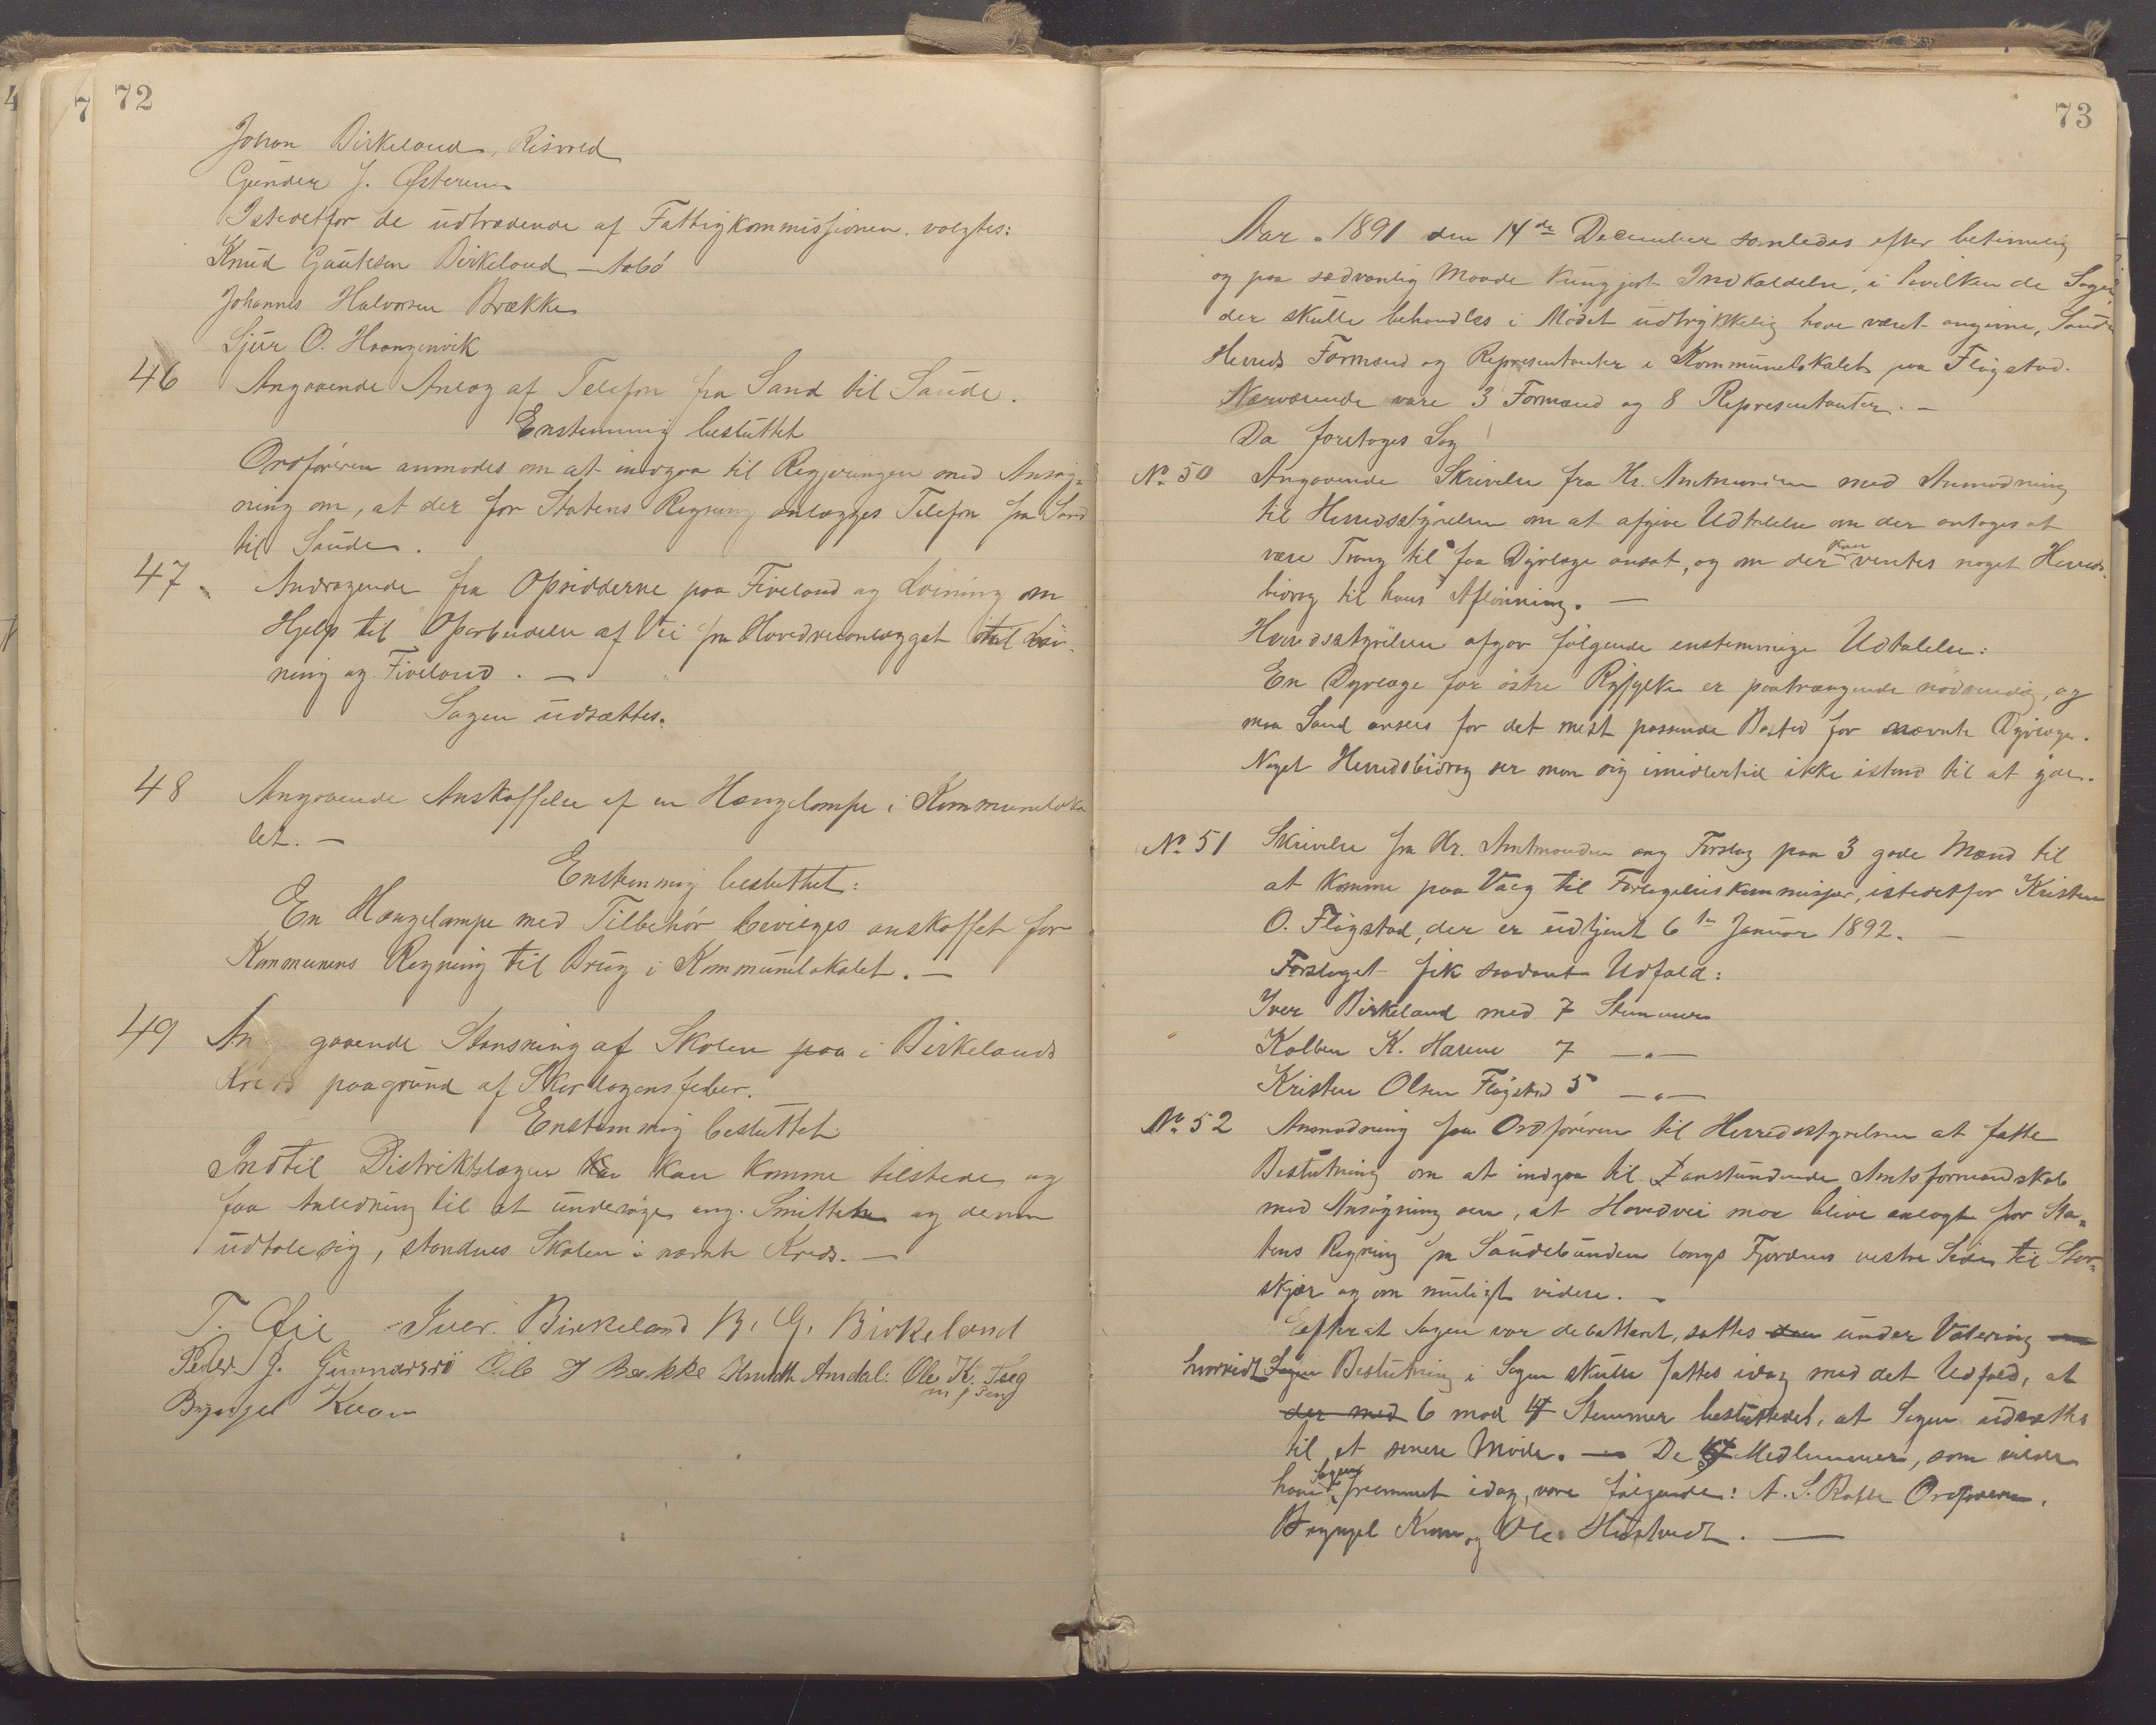 72
Johan Birkeland, Risvold
Gunder J. Østerem
Istedetfor de udtrædende af Fattigkommissionen valgtes:
Knud Gautesen Birkeland – Aabö
Johannes Halvorsen Brække
Sjur O. Haangenvik
46 Angaaende Anlæg af Telefon fra Sand til Saude.
Enstemmig besluttet
Ordföreren anmodes om at indgaa til Regjeringen med Ansøg=
ning om, at der for Statens Regning anlægges Telefon fra Sand
til Saude.
47. Andragende fra Opsidderne paa Fiveland og Löining om
Hjelp til Oparbeidelse af Vei fra Hovedveianlægget til Löi-
ning og Fiveland. —
Sagen udsættes.
48 Angaaende Anskaffelse af en Hængelampe i Kommuneloka
let. —
Enstemmig besluttet:
En Hængelampe med Tilbehör bevilges anskaffet for
Kommunens Regning til Brug i Kommunelokalet. —
49 Angaaende Stansning af Skolen paa i Birkelands
Kreds paagrund af Skarlagensfeber.
Enstemmig besluttet
Indtil Distriktslægen kan komme tilstede og
faa Anledning til at undersöge ang. Smitten og derom
udtale sig, standses Skolen i nævnte Kreds. —
T. Øie Iver Birkeland B. G. Birkeland
Peder J. Gunnarsrö Ole J Bakke Knudth Amdal: Ole K. Tseg
m p Pen
Brynjel Kvam
73
Aar 1891 den 14de December samledes efter betimelig
og paa sædvanlig Maade kungjort Indkaldelse, i hvilken de Sager
der skulle behandles i Mödet udtrykkelig have været angivne, Saude
Herreds Formænd og Repræsentanter i Kommunelokalet paa Flögstad.
Nærværende vare 3 Formænd og 8 Repræsentanter. —
Da foretoges Sag
No 50 Angaaende Skrivelse fra Hr. Amtmanden med Anmodning
til Herredsstyrelsen om at afgive Udtalelse om der antages at
være Trang til faa Dyrlæge ansat, og om der kan ventes noget Herreds-
bidrag til hans Aflönning. —
Herredsstyrelsen afgav fölgende enstemmige Udtalelse:
En Dyrlæge for östre Ryfylke er paatrængende nödvendig, og
maa Sand ansees for det mest passende Bosted for nævnte Dyrlæge.
Noget Herredsbidrag ser man sig imidlertid ikke istand til at yde.
No 51 Skrivelse fra Hr. Amtmanden ang Forslag paa 3 gode Mænd til
at komme paa Valg til Forligelseskommissær, istedetfor Kristen
O. Flögstad, der er udtjent 6te Januar 1892. —
Forslaget fik saadant Udfald:
Iver Birkeland med 7 Stemmer
Kolben K. Harem 7 —"—
Kristen Olsen Flögstad 5 —"—
No 52 Anmodning fra Ordföreren til Herredsstyrelsen at fatte
Beslutning om at indgaa til forestundende Amtsformandskab
med Ansögning om, at Hovedvei maa blive anlagt for Sta=
tens Regning fra Saudebunden langs Fjordens vestre Side til Stor=
skjær og om muligt videre. —
Efterat Sagen var debatteret, sattes den under Votering om
hvorvidt Sagen Beslutning i Sagen skulle fattes idag med det Udfald, at
der med 6 mod 4 Stemmer besluttedes, at Sagen udsættes
til et senere Möde. — De 4 Medlemmer, som vilde
have Sagen fremmet idag, vare fölgende: A. S. Ordföreren,
Brynjel Kvam og Ole Hustvedt. —